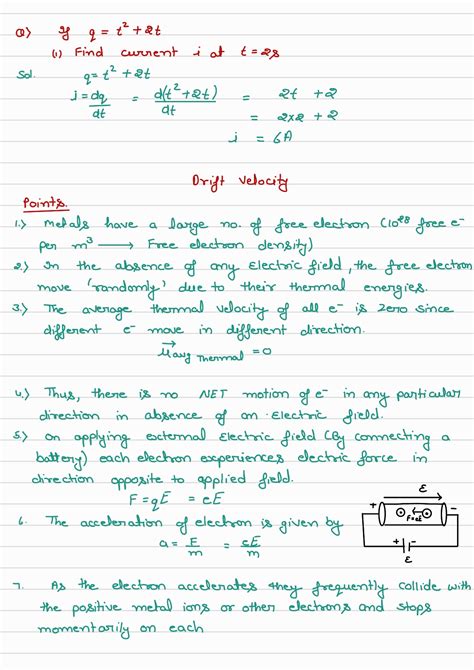 Q) If q = t² + 2t
(i) Find current i at t = 2s
Sol. q = t² + 2t
i = dq/dt = d(t² + 2t)/dt = 2t + 2
= 2×2 + 2
i = 6A
Drift Velocity
Points.
1.) Metals have a large no. of free electron (10²⁸ free e⁻
per m³ ⟶ Free electron density)
2.) In the absence of any Electric field, the free electron
move 'randomly' due to their thermal energies.
3.) The average thermal velocity of all e⁻ is zero since
different e⁻ move in different direction.
u⃗ avg Thermal = 0
4.) Thus, there is no NET motion of e⁻ in any particular
direction in absence of an Electric field.
5.) On applying external Electric field (By connecting a
battery) each electron experiences electric force in
direction opposite to applied field.
F = qE = eE
6. The acceleration of electron is given by
a = F/m = eE/m
E
+ −
F=eE
+ −
ε
7. As the electron accelerates they frequently collide with
the positive metal ions or other electrons and stops
momentarily on each